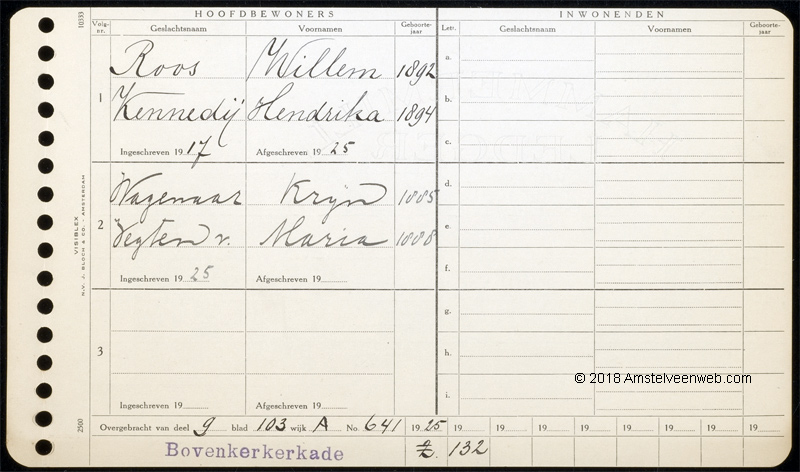 HOOFDBEWONERS INWONENDEN
10333
Volg-nr. Geslachtsnaam Voornamen Geboorte-jaar Lett. Geslachtsnaam Voornamen Geboorte-jaar
1
Roos Willem 1892
Kennedij Hendrika 1894
Ingeschreven 1917 Afgeschreven 1925
2
Wagenaar Krijn 1885
Vegten v. Maria 1888
Ingeschreven 1925 Afgeschreven 19
3
Ingeschreven 19 Afgeschreven 19
a.
b.
c.
d.
e.
f.
g.
h.
i.
VISIBLEX
N.V. J. BLOCH & CO. - AMSTERDAM
2500
© 2018 Amstelveenweb.com
Overgebracht van deel 9 blad 103 wijk A No. 641 1925 19 19 19 19 19 19 19
Bovenkerkerkade Z. 132